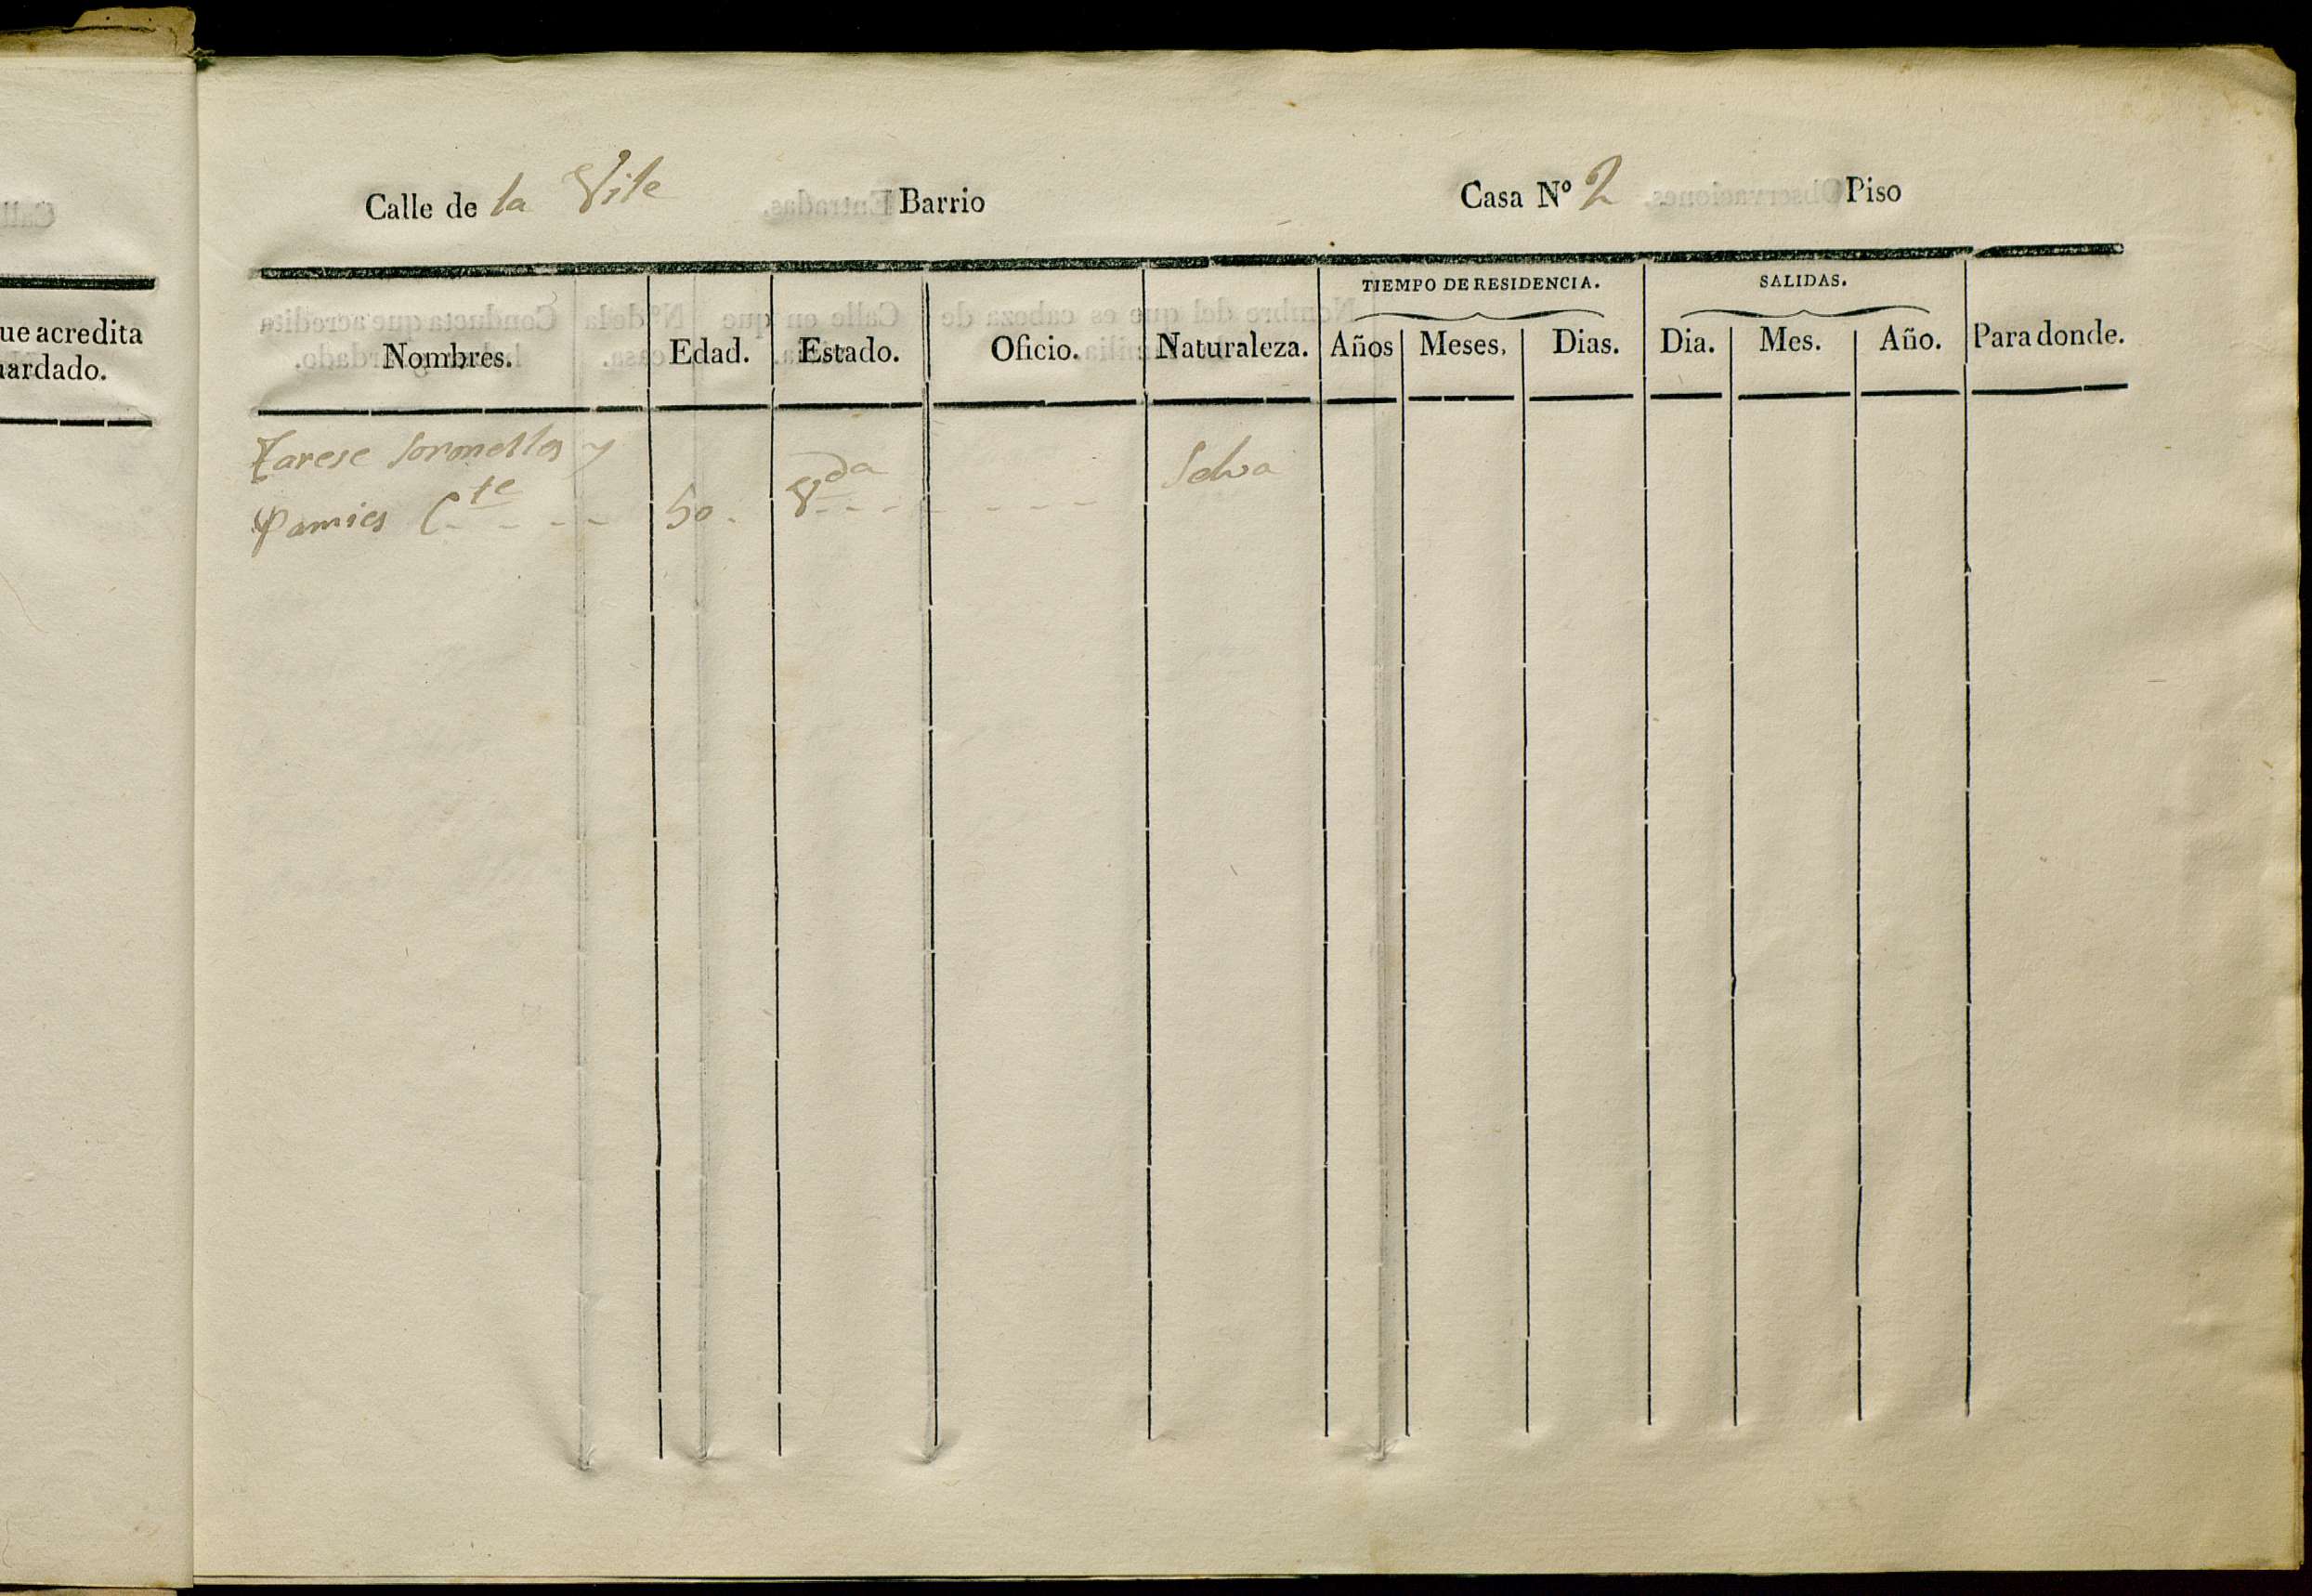 Calle de la Vile Barrio Casa Nº 2 Piso
ue acredita
ardado.
TIEMPO DE RESIDENCIA. SALIDAS.
Nombres. Edad. Estado. Oficio. Naturaleza. Años Meses. Dias. Dia. Mes. Año. Para donde.
Tarese y
Pamies Cte 50. Vda Selva